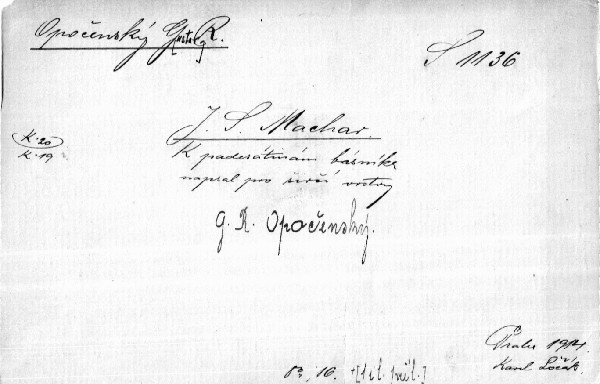 Opočenský G[ustav] R.
S 1136
J. S. Machar.
K. 20
K. 19
K padesátinám básníka
napsal pro širší vrstvy
G. R. Opočenský.
Praha 1914.
Karel Ločák.
8°, 16.